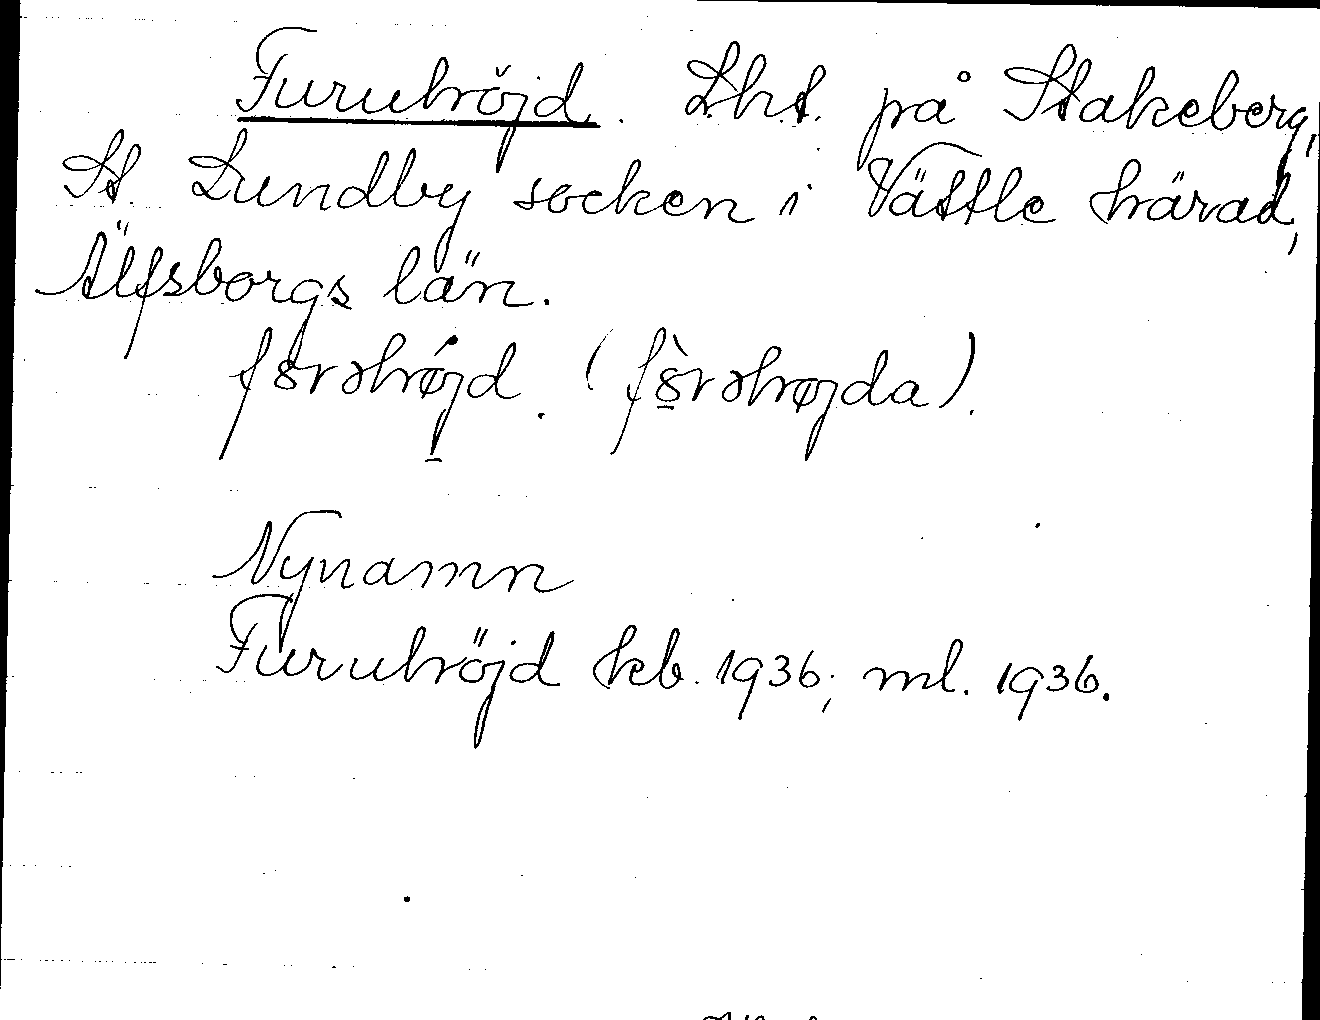 Furuhöjd. Lht. på Stakeberg,
St. Lundby socken i Vättle härad,
Älfsborgs län.
Nynamn
Furuhöjd kb. 1936; ml. 1936.